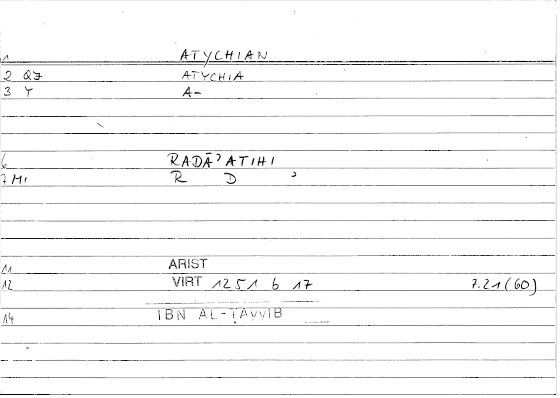 1 ATYCHIAN
2 QJ ATYCHIA
3 Y A-
6 RADĀʾATIHI
7 MI R D ʾ
11 ARIST
12 VIRT 1251 b 17 7.21(60)
14 IBN AL-ṬAYYIB